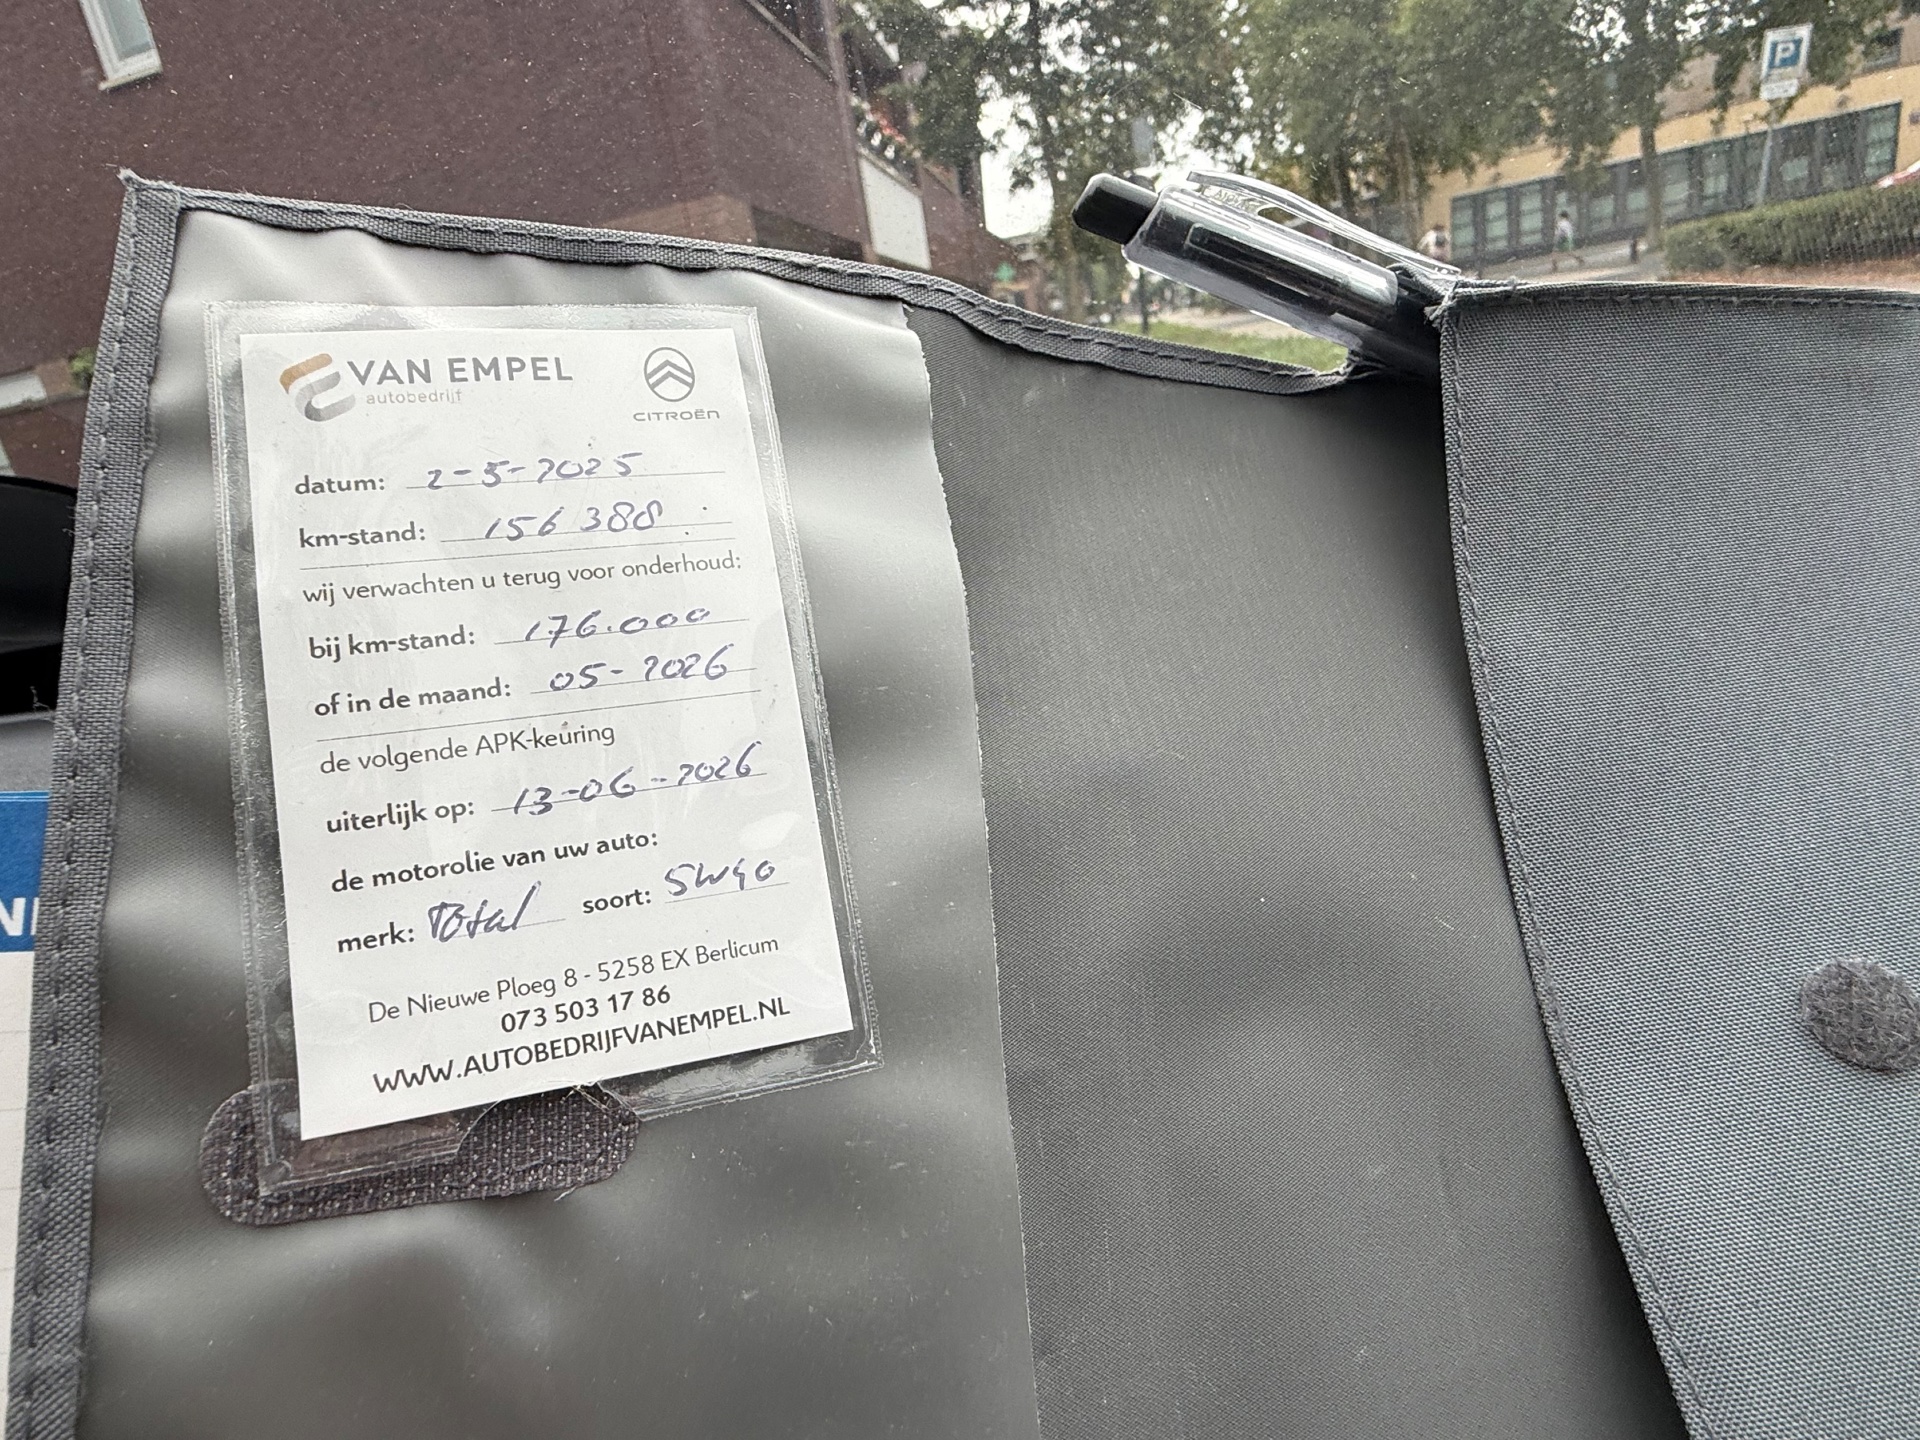 VAN EMPEL
autobedrijf
CITROËN
datum: 2-5-2025
km-stand: 156 388
wij verwachten u terug voor onderhoud:
bij km-stand: 176.000
of in de maand: 05-2026
de volgende APK-keuring
uiterlijk op: 13-06-2026
de motorolie van uw auto:
merk: Total soort: 5W40
De Nieuwe Ploeg 8 - 5258 EX Berlicum
073 503 17 86
WWW.AUTOBEDRIJFVANEMPEL.NL
P